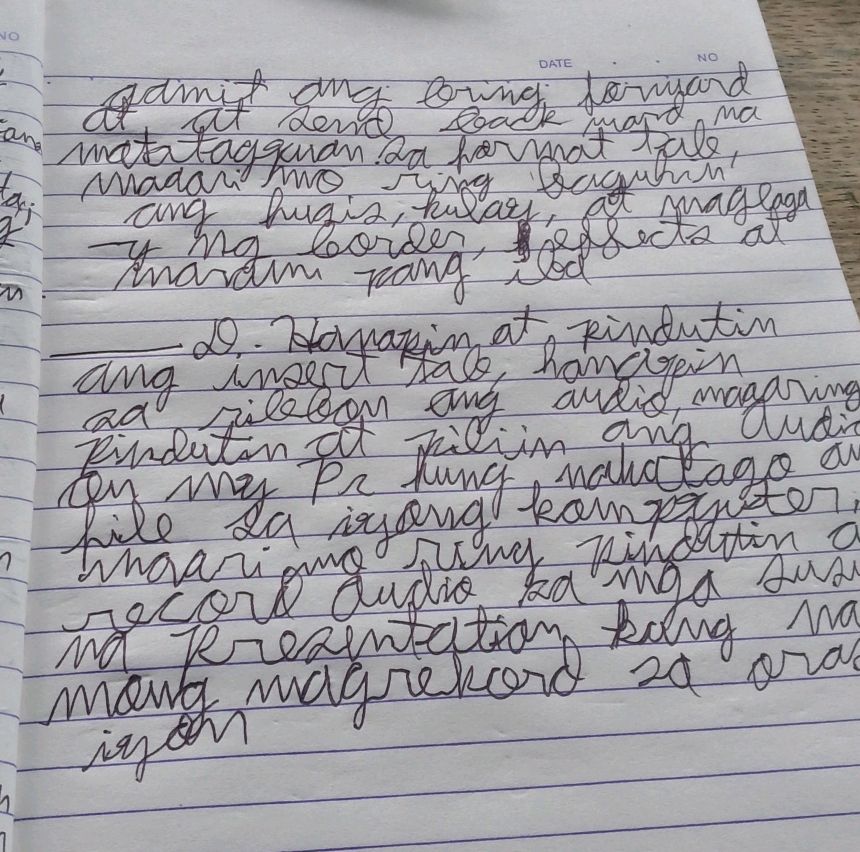 DATE NO
NO
admit ang bring forward
at at send back ward na
matatagquan sa format tab,
maaari mo ring baguhin
ang hugis, kulay, at maglaga
-y ng border, effects at
maram pang iba
D. Hanapin at pindutin
ang insert tab, hanapin
sa ribbon ang audio, maaaring
pindutin at piliin ang audio
on my Pc kung nakatago a
file sa iyong kompyuter,
maari mo ring pindutin a
record audio sa mga su
na Prezentation kung na
mong magrekord sa ora
iyon